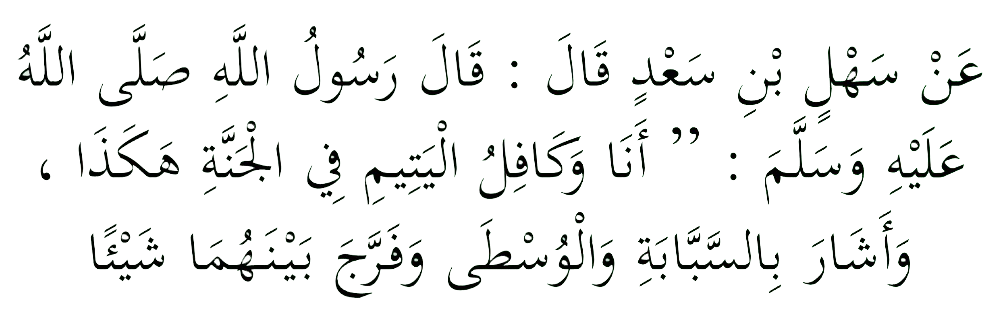 عَنْ سَهْلٍ بْنِ سَعْدٍ قَالَ : قَالَ رَسُولُ اللَّهِ صَلَّى اللَّهُ
عَلَيْهِ وَسَلَّمَ : ” أَنَا وَكَافِلُ الْيَتِيمِ فِي الْجَنَّةِ هَكَذَا ،
وَأَشَارَ بِالسَّبَّابَةِ وَالْوُسْطَى وَفَرَّجَ بَيْنَهُمَا شَيْئًا